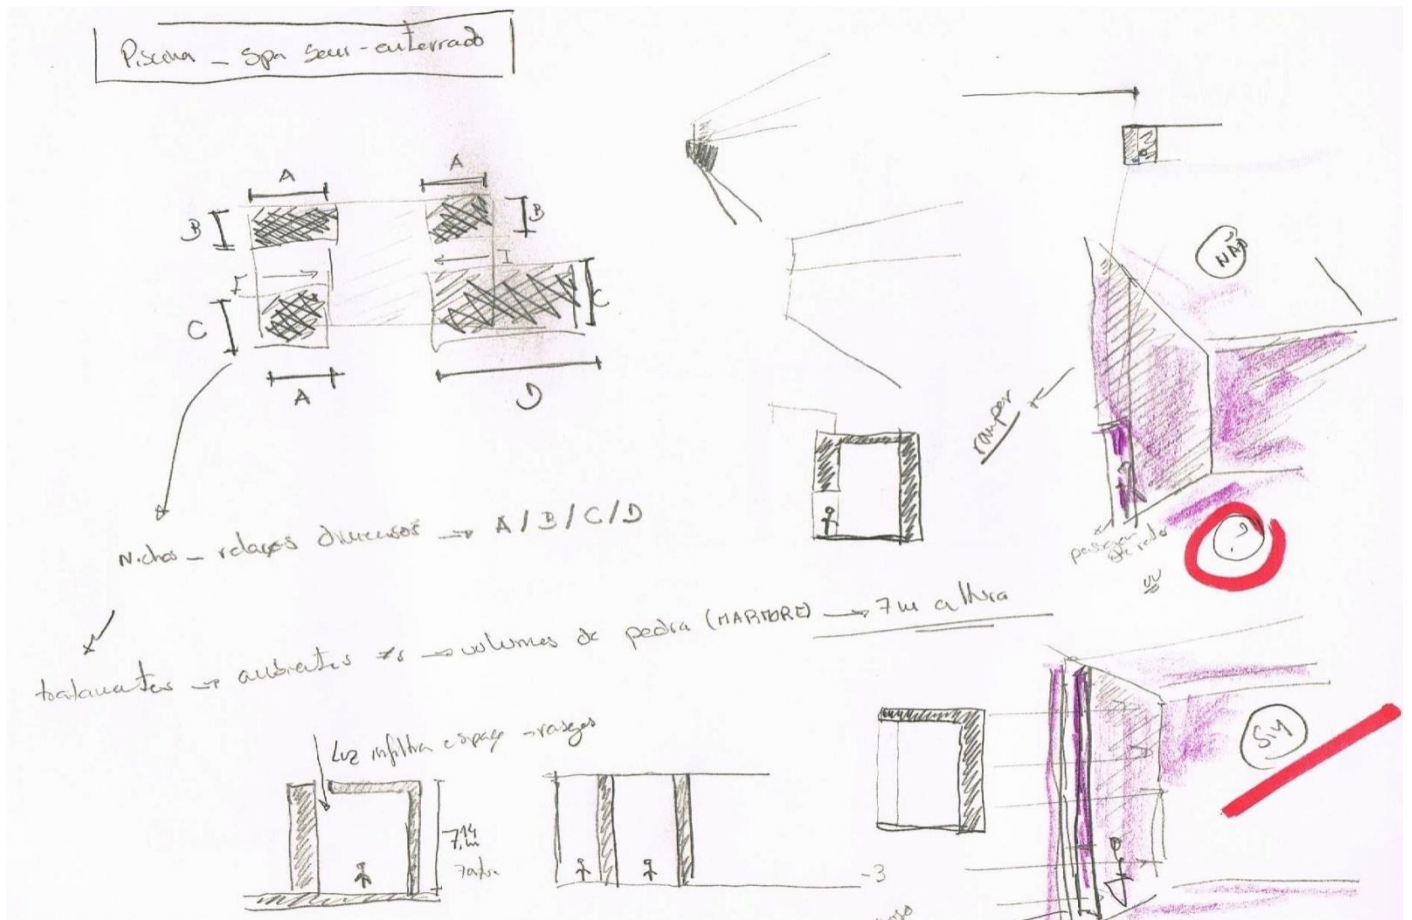 Piscina _ Spa semi-enterrado
A
A
B
B
I
I
C
C
A
D
NÃO
rampa
?
Nichos _ relações dimensões → A / B / C / D
tratamentos → ambientes ≠s → volumes de pedra (MARMORE) → 7m altura
Luz infiltra espaço → rasgos
7,14
m
SIM
-3